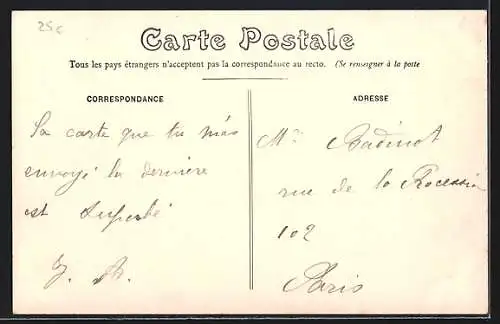 25c
Carte Postale
Tous les pays étrangers n'acceptent pas la correspondance au recto. (Se renseigner à la poste
CORRESPONDANCE
La carte que tu m'as
envoyé la dernière
est superbe
ADRESSE
Mr Badinot
rue de la Procession
102
Paris